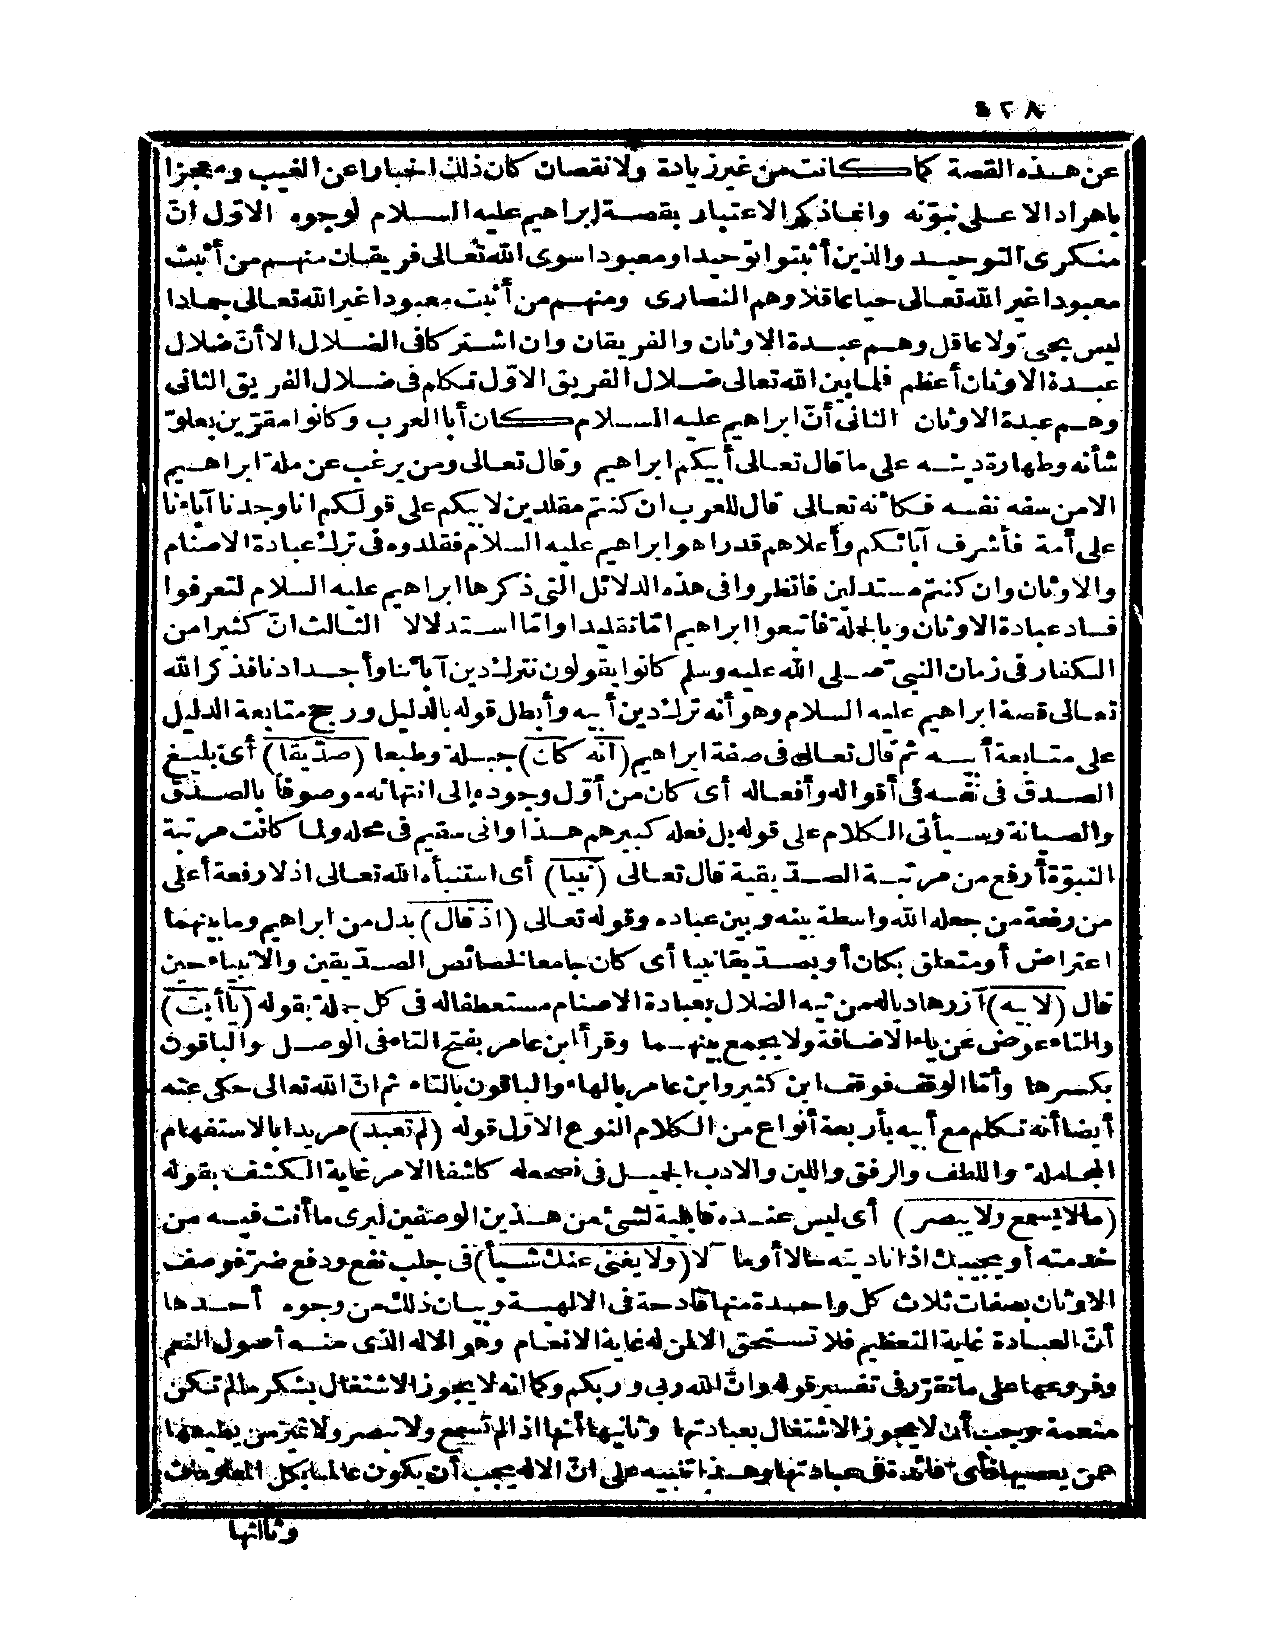 ٤٢٨
عن هذه القصة كما كانت من غير زيادة ولا نقصان كان ذلك اخبارا عن الغيب ومعجزا
باهرا دالا على نبوّته وانما ذكر الاعتبار بقصة ابراهيم عليه السلام لوجوه الاوّل انّ
منكرى التوحيد والذين أثبتوا توحيدا ومعبودا سوى الله تعالى فريقان منهم من أثبت
معبودا غير الله تعالى حيا عاقلا وهم النصارى ومنهم من أثبت معبودا غير الله تعالى جمادا
ليس بحىّ ولا عاقل وهم عبدة الاوثان والفريقان وان اشتركا فى الضلال الا أنّ ضلال
عبدة الاوثان أعظم فلما بين الله تعالى ضلال الفريق الاوّل تكلم فى ضلال الفريق الثانى
وهم عبدة الاوثان الثانى أنّ ابراهيم عليه السلام كان أبا العرب وكانوا مقرّين بعلوّ
شأنه وطهارة دينه على ما قال تعالى أبيكم ابراهيم وقال تعالى ومن يرغب عن ملة ابراهيم
الامن سفه نفسه فكانه تعالى قال للعرب ان كنتم مقلدين لا بيكم على قولكم انا وجدنا آباءنا
على أمة فأشرف آبائكم وأعلاهم قدرا هو ابراهيم عليه السلام فقلدوه فى ترك عبادة الاصنام
والاوثان وان كنتم مستدلين فانظروا فى هذه الدلائل التى ذكرها ابراهيم عليه السلام لتعرفوا
فساد عبادة الاوثان وبالجملة فاتبعوا ابراهيم امّا تقليدا وامّا استدلالا الثالث انّ كثيرا من
الكفار فى زمان النبىّ صلى الله عليه وسلم كانوا يقولون نترك دين آبائنا وأجدادنا فذكر الله
تعالى قصة ابراهيم عليه السلام وهو أنه ترك دين أبيه وأبطل قوله بالدليل ورجح متابعة الدليل
على متابعة أبيه ثم قال تعالى فى صفة ابراهيم (انه كان) جبلة وطبعا (صدّيقا) أى بليغ
الصدق فى نفسه فى أقواله وأفعاله أى كان من أوّل وجوده إلى انتهائه موصوفا بالصدق
والصيانة وسيأتى الكلام على قوله بل فعله كبيرهم هذا وانى سقيم فى محله ولما كانت مرتبة
النبوّة أرفع من مرتبة الصديقية قال تعالى (نبيا) أى استنبأه الله تعالى اذ لا رفعة أعلى
من رفعة من جعله الله واسطة بينه وبين عباده وقوله تعالى (اذ قال) بدل من ابراهيم وما بينهما
اعتراض أو متعلق بكان أو بصديقا نبيا أى كان جامعا لخصائص الصديقين والانبياء حين
قال (لا بيه) آزر هاديا له من تيه الضلال بعبادة الاصنام مستعطفا له فى كل جملة بقوله (يا أبت)
والتاء عوض عن ياء الاضافة ولا يجمع بينهما وقرأ ابن عامر بفتح التاء فى الوصل والباقون
بكسرها وأمّا الوقف فوقف ابن كثير وابن عامر بالهاء والباقون بالتاء ثم انّ الله تعالى حكى عنه
أيضا أنه تكلم مع أبيه بأربعة أنواع من الكلام النوع الاوّل قوله (لم تعبد) مريدا بالاستفهام
المجاملة واللطف والرفق واللين والادب الجميل فى نصحه له كاشفا الامر غاية الكشف بقوله
(ما لا يسمع ولا يبصر) أى ليس عنده قابلية لشئ من هذين الوصفين ليرى ما أنت فيه من
خدمته أو يجيبك اذا ناديته حالا أو مآلا (ولا يغنى عنك شيأ) فى جلب نفع ودفع ضرّ فوصف
الاوثان بصفات ثلاث كل واحدة منها قادحة فى الالهية وبيان ذلك من وجوه أحدها
أنّ العبادة غاية التعظيم فلا تستحق الا لمن له غاية الانعام وهو الاله الذى منه أصول النعم
وفروعها على ما تقرّر فى تفسير قوله وانّ الله ربى وربكم وكما انه لا يجوز الاشتغال بشكر مالم تكن
منعمة وجب أن لا يجوز الاشتغال بعبادتها وثانيها أنها اذا لم تسمع ولا تبصر ولا تميز من يطيعها
عمن يعصيها فأىّ فائدة فى عبادتها وهذا تنبيه على انّ الاله يجب أن يكون عالما بكل المعلومات
وثالثها